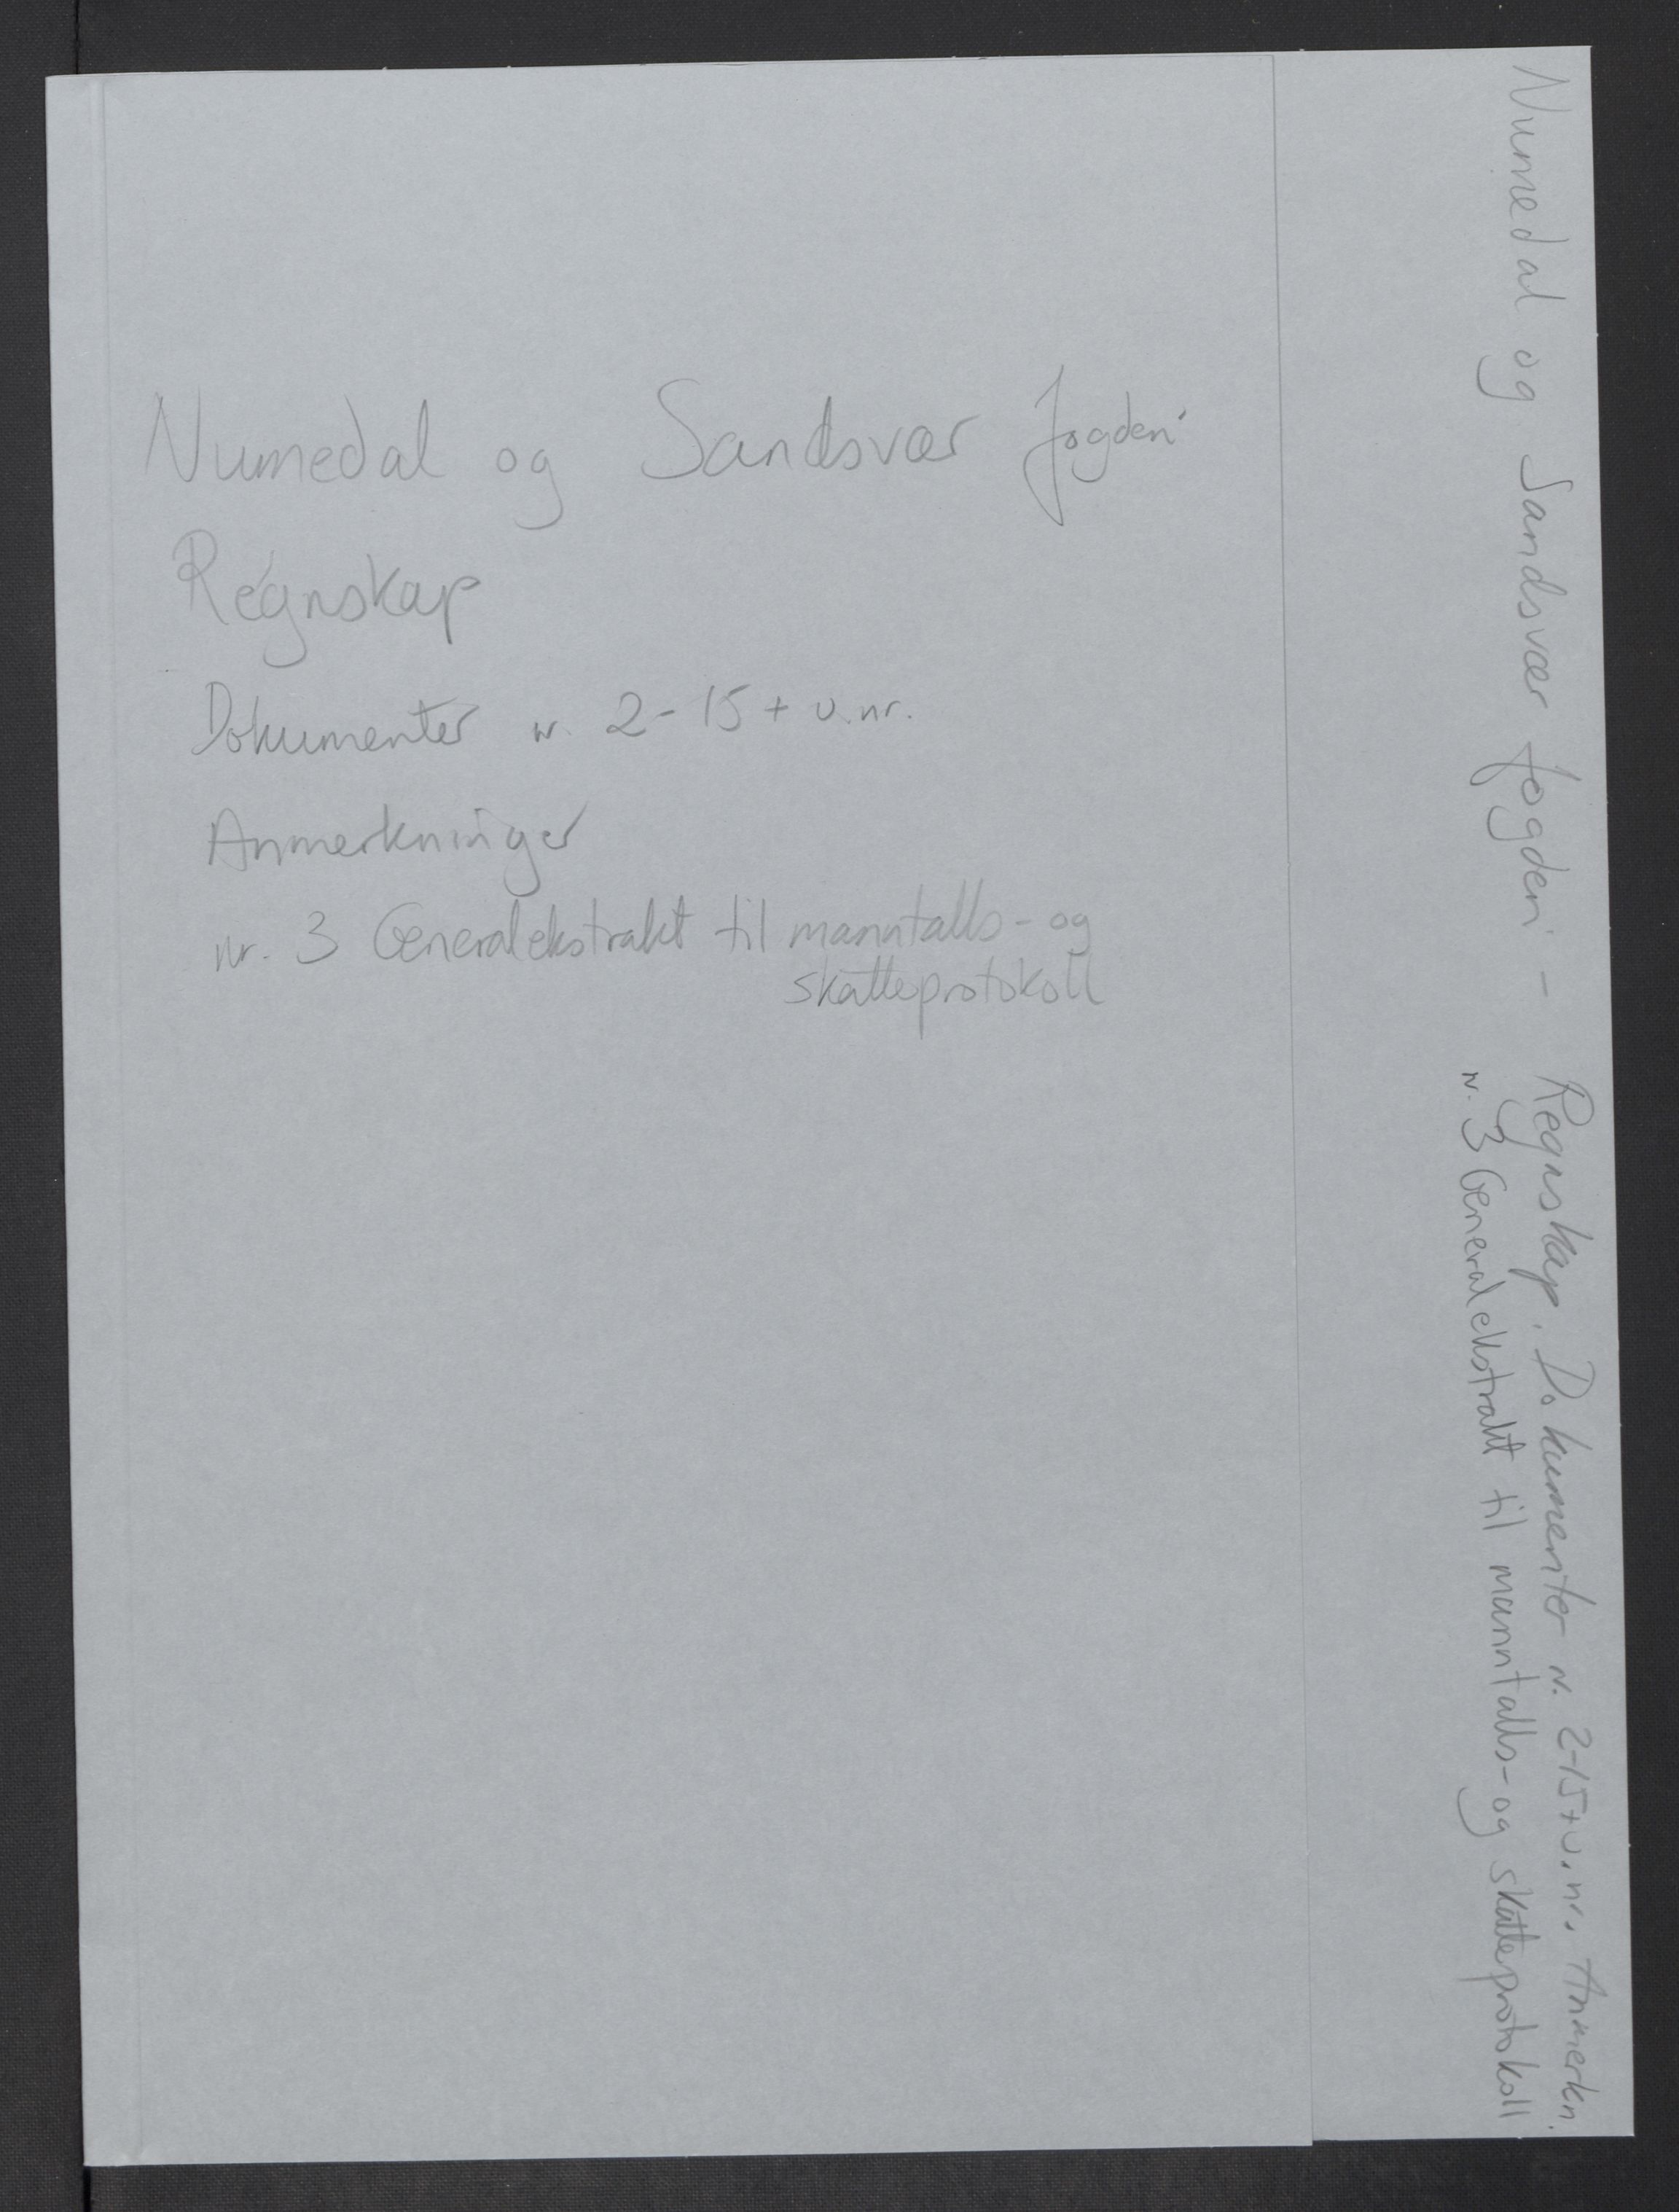 Numedal og Sandsvær fogderi
Regnskap
Dokumenter nr. 2-15 + u.nr.
Anmerkninger
nr. 3 Generalekstrakt til manntalls- og
skatteprotokoll
Numedal og Sandsvær fogderi - Regnskap. Dokumenter nr. 2-15+u.nr. Anmerkn.
nr. 3 Generalekstrakt til manntalls- og skatteprotokoll